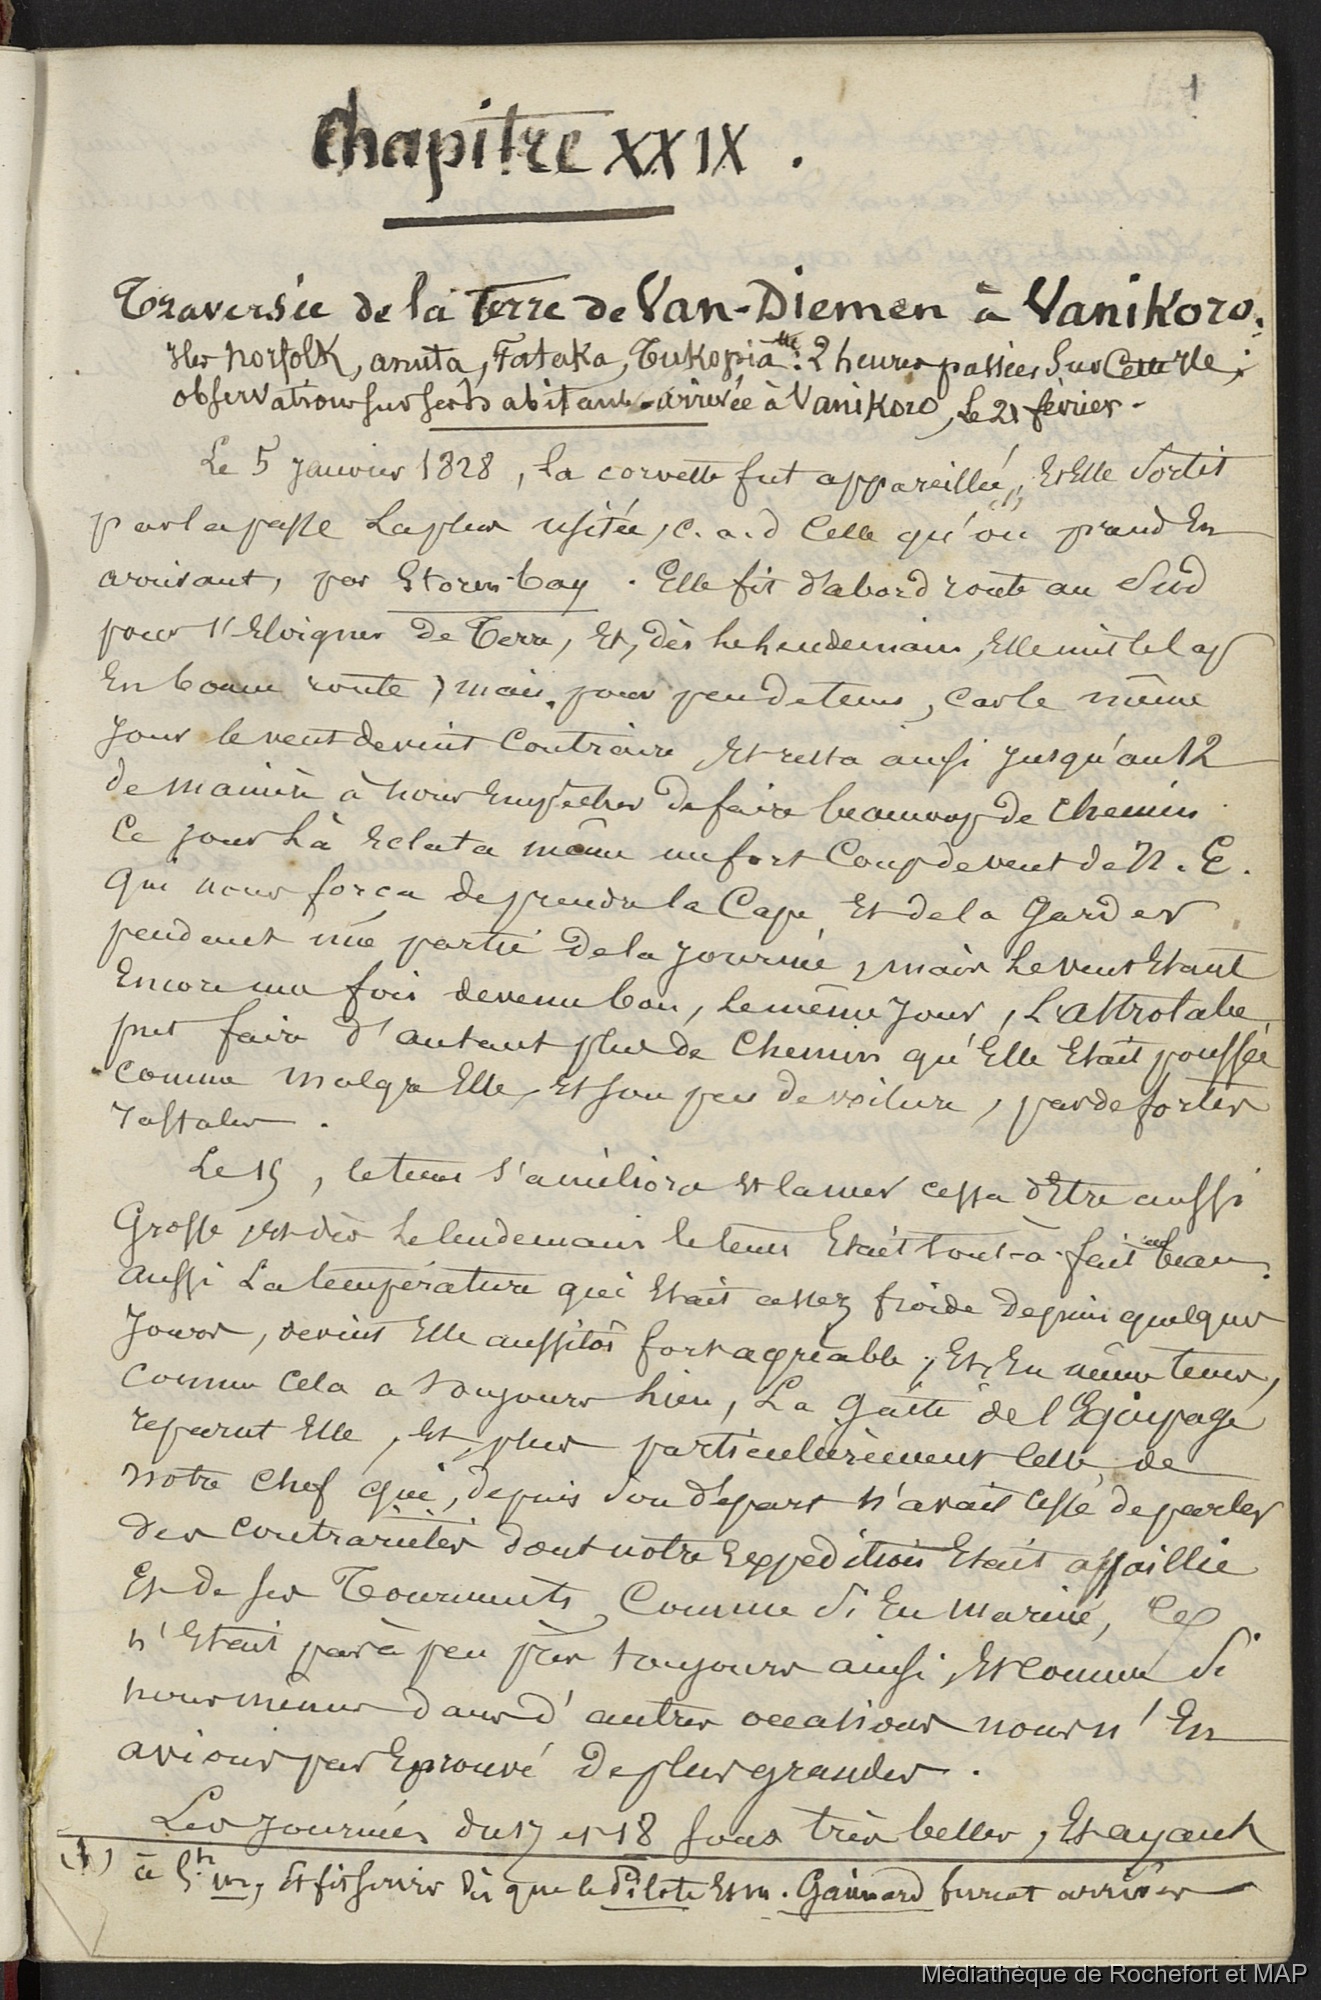 1
Chapitre XXIX.
Traversée de la Terre de Van-Diemen à Vanikoro.
Iles Norfolk, anuta, Fataka, Tukopia : 2 heures passées sur Cette Ile ;
observations sur ses habitants - arrivée à Vanikoro, le 21 février -
Le 5 Janvier 1828, la corvette fut appareillée, Et Elle Sortit
par la passe La plus usitée, c. a. d Celle qu'on prend En
arrivant, par Storm-bay. Elle fit d'abord route au Sud
pour s'Eloigner De Terre, Et, dès le lendemain, Elle mit le Cap
En bonne route, mais pour peu de tems, car le même
Jour le vent devint Contraire, Et resta ainsi jusqu'au 12
de manière à nous Empêcher De faire beaucoup de Chemin
Ce jour là Eclata même un fort Coup de vent de N. E.
Qui nous força de prendre la Cape Et de la Garder
pendant une partie De la journée, mais le vent Etant
Encore une fois devenu bon, le même Jour, L'Astrolabe
put faire d'autant plus de Chemin qu'Elle Etait poussée
comme malgré Elle, Et son peu de voilure, par de fortes
rafales.
Le 15, le tems s'améliora Et la mer cessa d'Etre aussi
Grosse, Et dès le lendemain le tems Etait tout-à-fait beau.
Aussi La température qui Etait assez froide Depuis quelques
Jours, devint Elle aussitôt fort agréable, Et, En même tems,
Comme Cela a toujours lieu, La gaîté de l'Equipage
reparut Elle, Et, plus particulièrement Celle, de
Notre Chef qui, depuis son départ n'avait Cessé de parler
des Contrariétés dont notre Expedition Etait assaillie
Et de ses Tourments, Comme Si En Marine, Ce
n'Etait pas à peu près toujours ainsi, Et Comme Si
nous mêmes dans d'autres occasions nous n'En
avions pas Eprouvé De plus grandes.
Les journées du 17 et 18 furent très belles, Et ayant
(1) à 5h m, Et fit servir Dès que le Pilote Et m. Gaimard furent arrivés
Médiathèque de Rochefort et MAP